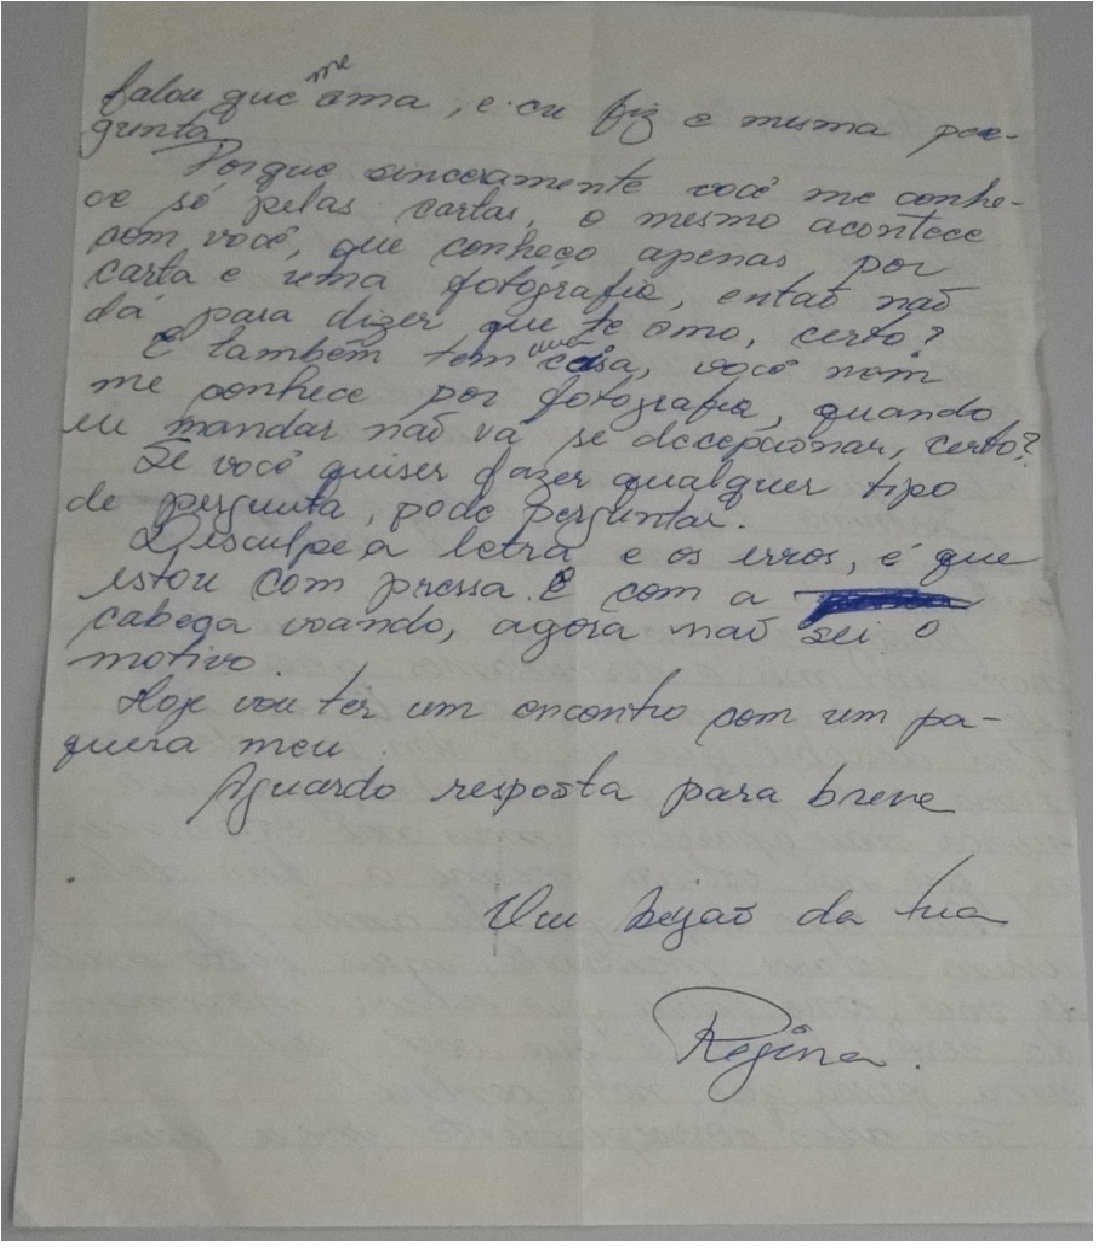 falou que me ama, e eu fiz a mesma per-
gunta
Porque sinceramente você me conhe-
ce só pelas cartas, o mesmo acontece
com você, que conheço apenas por
carta e uma fotografia, então não
dá para dizer que te amo, certo?
E também tem uma coisa, você nem
me conhece por fotografia, quando
eu mandar não vá se decepcionar, certo?
Se você quiser fazer qualquer tipo
de pergunta, pode perguntar.
Desculpe a letra e os erros, é que
estou com pressa. E com a
cabeça voando, agora não sei o
motivo.
Hoje vou ter um encontro com um pa-
quera meu.
Aguardo resposta para breve
Um beijão da tua
Regina.